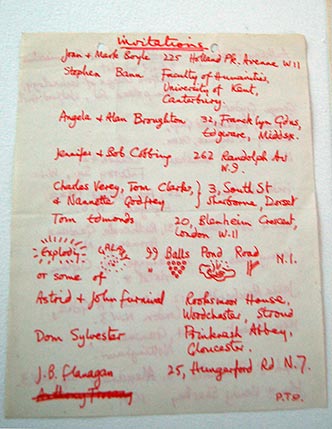 invitations
Joan + Mark Boyle 225 Holland Pk. Avenue W11
Stephen Bann Faculty of Humanities,
University of Kent,
Canterbury.
Angela + Alan Broughton 32, Franck Lyn Gdns,
Edgware, Middsx.
Jennifer + Bob Cobbing 262 Randolph Av
W.9.
Charles Verey, Tom Clarke, } 3, South St
& Nannette Godfrey } Sherborne, Dorset
Tom Edmonds 20, Blenheim Crescent,
London W.11
Explody Galaxy 99 Balls Pond Road N.1.
or some of
Astrid + John Furnival Rooksmoor House,
Woodchester, Stroud
Dom Sylvester Prinknash Abbey,
Gloucester.
J.B. Flanagan 25, Hungerford Rd N.7.
Anthony
P.T.O.